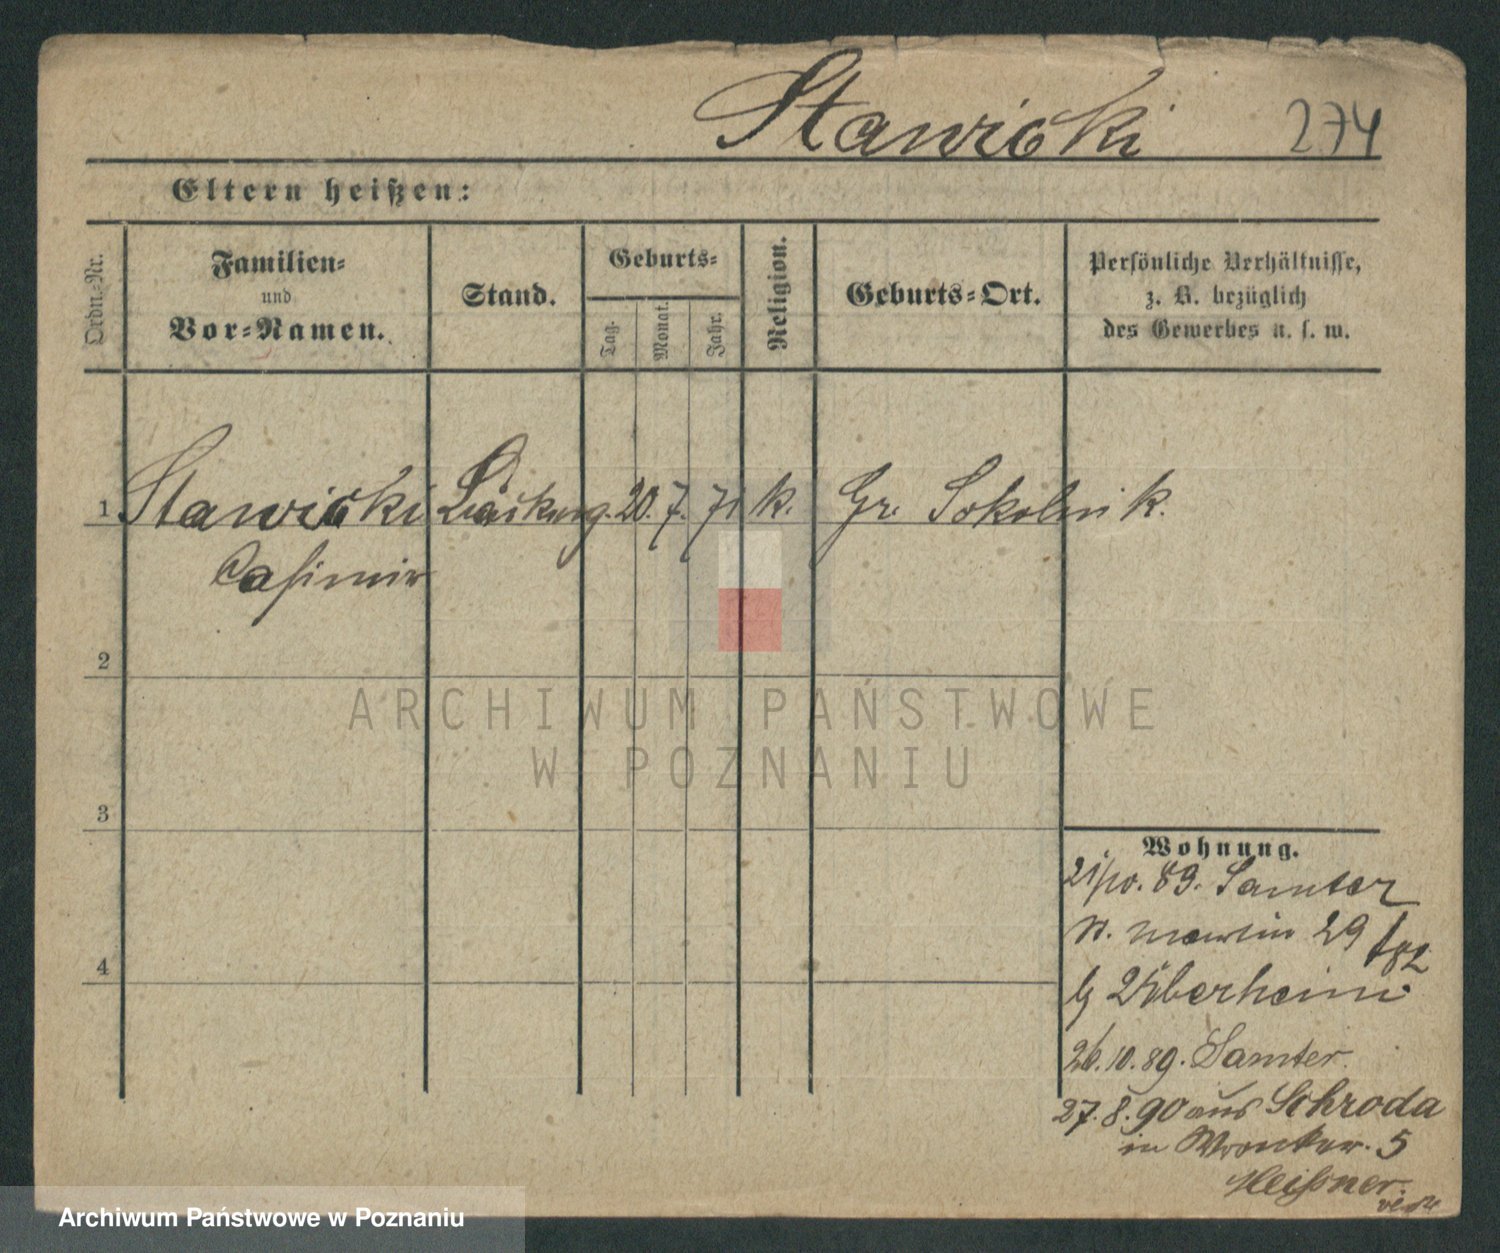 Stawicki 274
Eltern heißen:
Ordn.-Nr.
Familien-
und
Vor-Namen.
Stand.
Geburts-
Tag.
Monat.
Jahr.
Religion.
Geburts-Ort.
Persönliche Verhältnisse,
z. B. bezüglich
des Gewerbes u. s. w.
1 Stawicki 20. 7. 71 k. Gr. Sokolnik.
Casimir
2
ARCHIWUM PAŃSTWOWE
W POZNANIU
3
Wohnung.
21/10. 89. Samter
St. Martin 29
b
4
26.10.89. Samter.
27.8.90 aus Schroda
in Wronker. 5
Meißner.
Archiwum Państwowe w Poznaniu